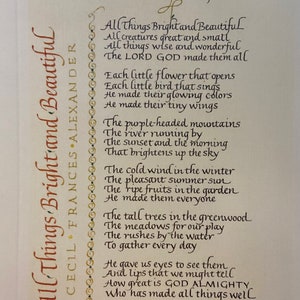 All Things Bright and Beautiful
CECIL · FRANCES · ALEXANDER
All Things Bright and Beautiful
All creatures great and small
All things wise and wonderful
The LORD GOD made them all
Each little flower that opens
Each little bird that sings
He made their glowing colors
He made their tiny wings
The purple-headed mountains
The river running by
The sunset and the morning
That brightens up the sky
The cold wind in the winter
The pleasant summer sun
The ripe fruits in the garden
He made them everyone
The tall trees in the greenwood
The meadows for our play
The rushes by the water
To gather every day
He gave us eyes to see them
And lips that we might tell
How great is GOD ALMIGHTY
Who has made all things well